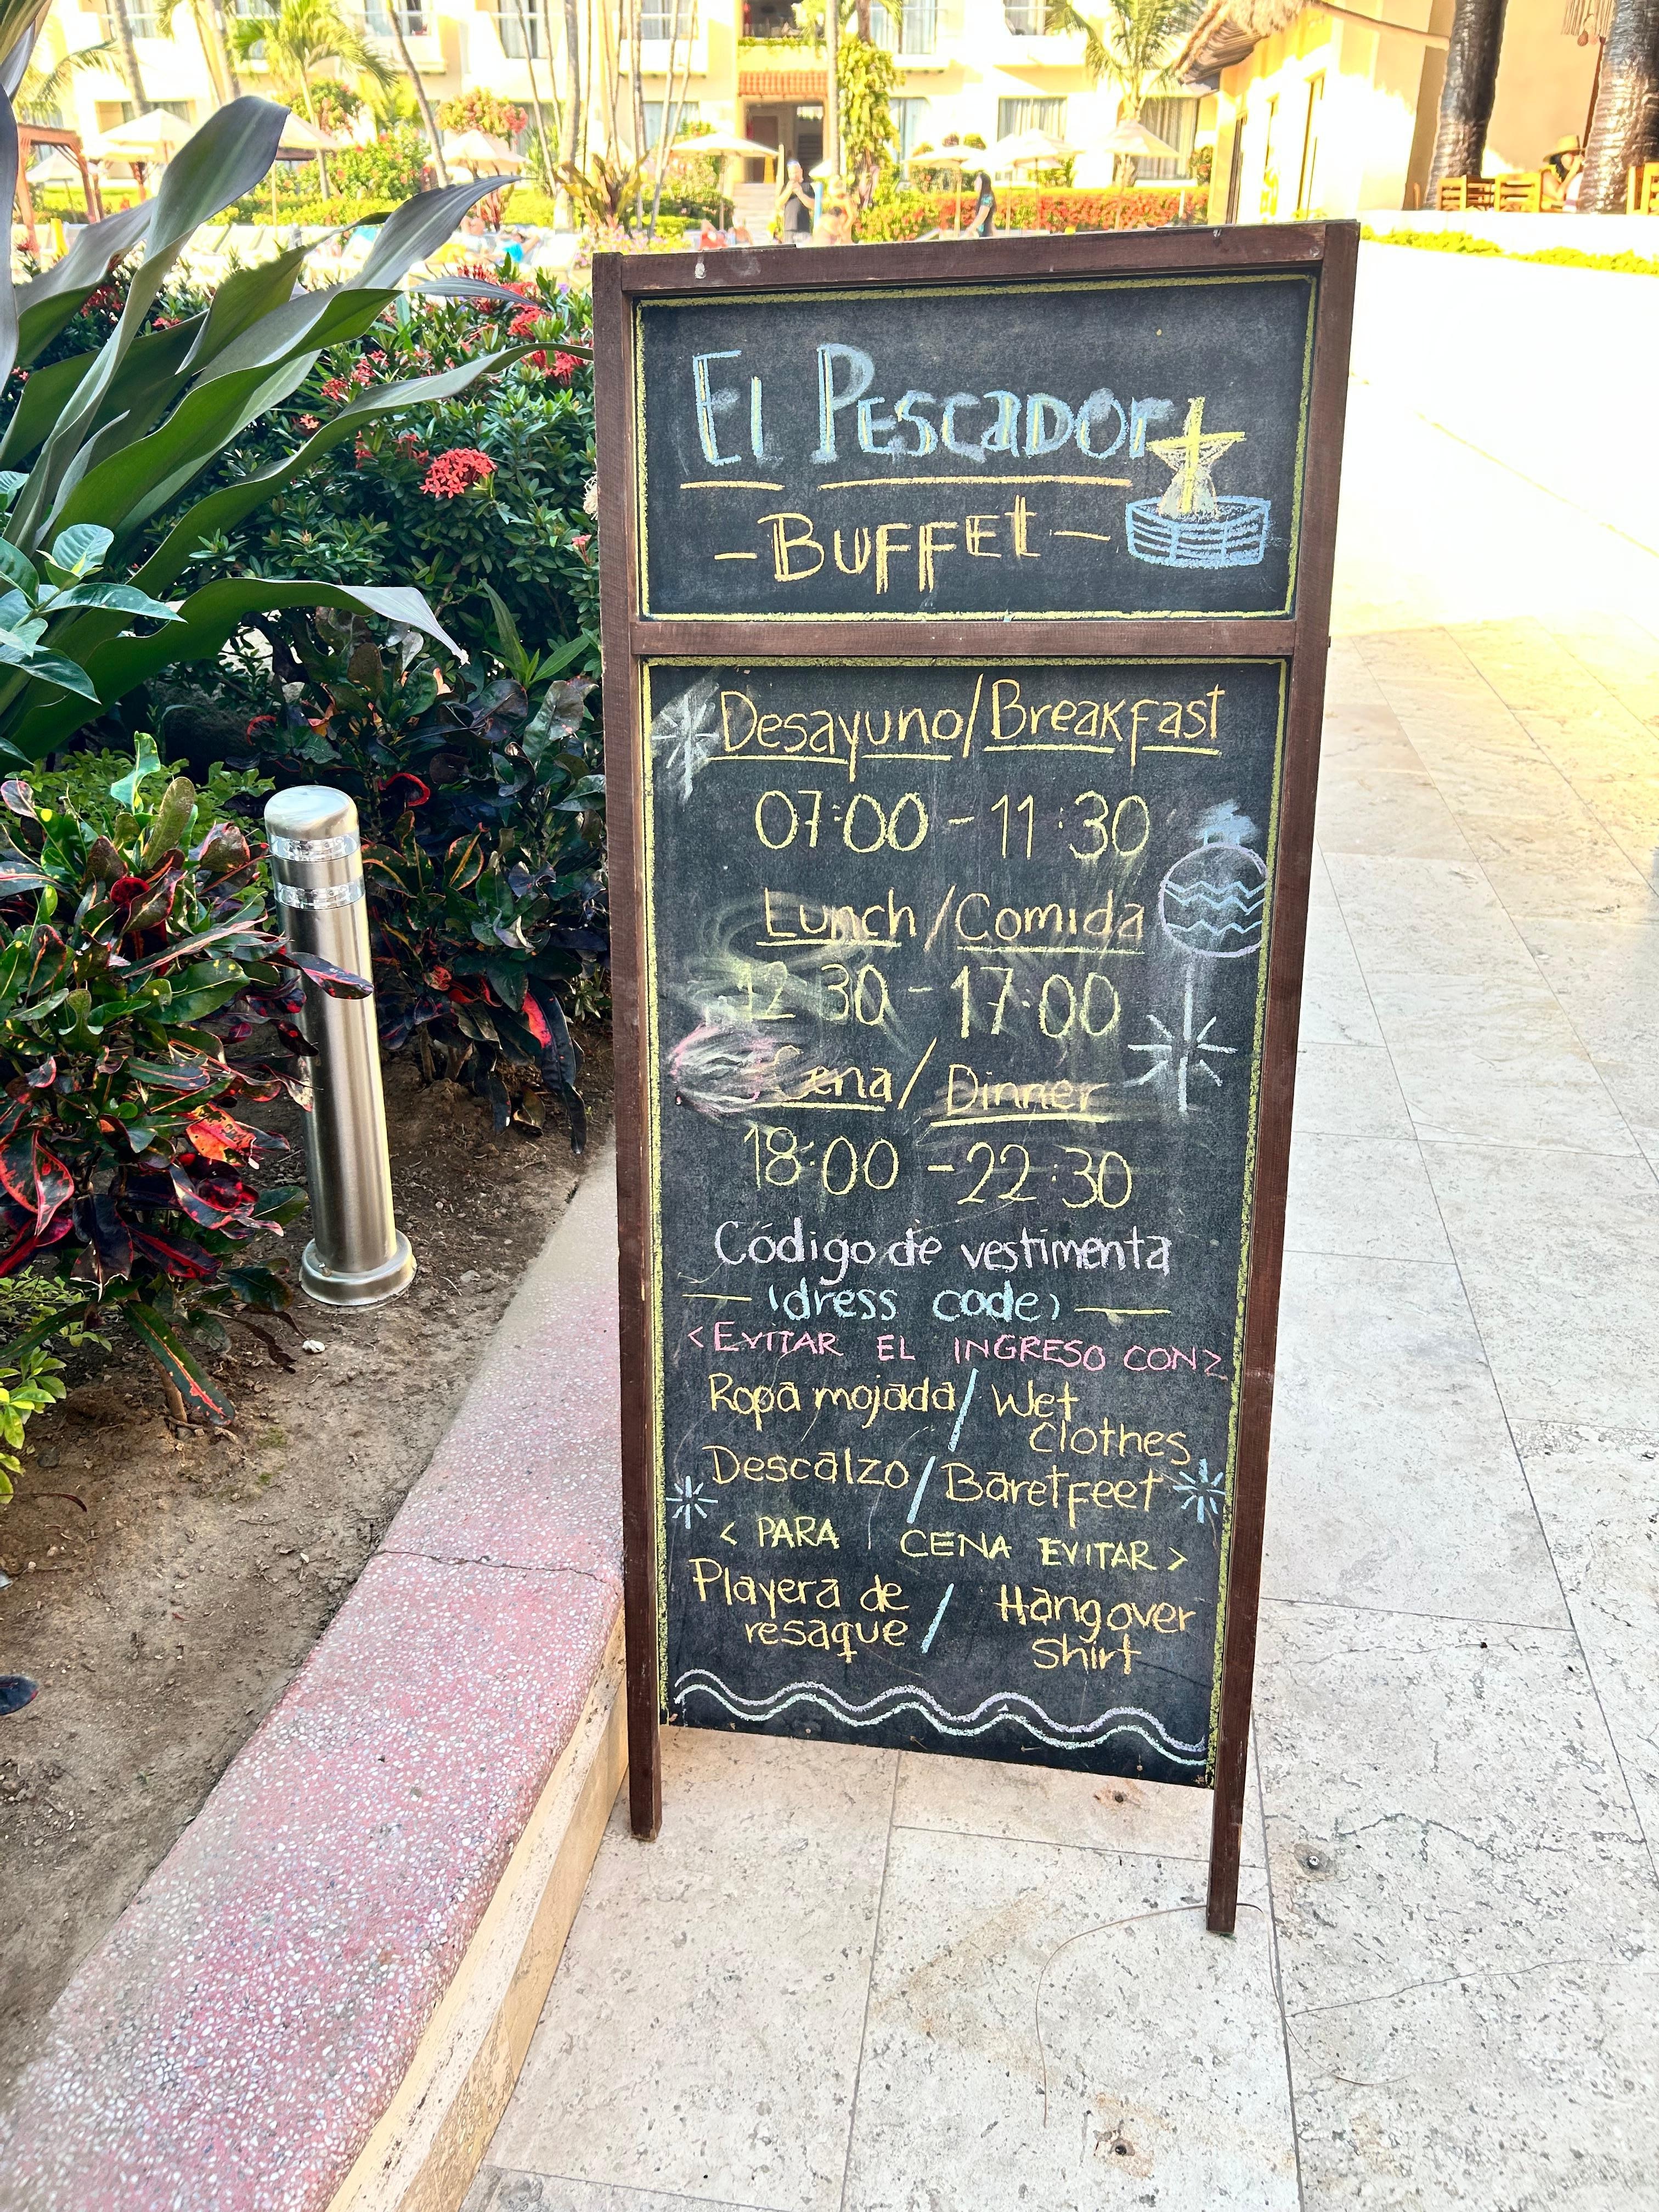 El Pescador
- Buffet -
Desayuno/Breakfast
07:00 - 11:30
Lunch/Comida
12 30 - 17:00
Cena/Dinner
18:00 - 22:30
Código de vestimenta
(dress code)
<EVITAR EL INGRESO CON>
Ropa mojada/Wet
clothes
Descalzo/Baretfeet
< PARA CENA EVITAR >
Playera de
resaque / Hangover
shirt